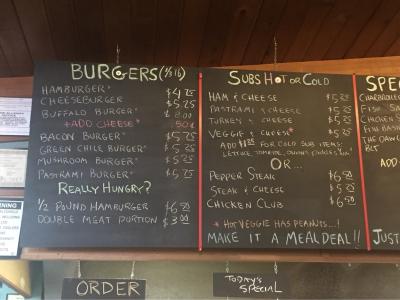 BURGERS (1/3 lb)
HAMBURGER* $4.75
CHEESEBURGER $5.25
BUFFALO BURGER* $8.00
+ADD CHEESE* 50¢
BACON BURGER* $5.75
GREEN CHILE BURGER* $5.25
MUSHROOM BURGER* $5.75
PASTRAMI BURGER* $5.75
REALLY HUNGRY?
1/2 POUND HAMBURGER $6.50
DOUBLE MEAT PORTION $3.00
SUBS HOT OR COLD
HAM & CHEESE $5.25
PASTRAMI & CHEESE $5.25
TURKEY & CHEESE $5.25
VEGGIE & CHEESE* $5.25
ADD FOR COLD SUB ITEMS:
LETTUCE, TOMATOE, ONIONS, PICKLES
OR...
PEPPER STEAK
STEAK & CHEESE
CHICKEN CLUB
*HOT VEGGIE HAS PEANUTS...!
MAKE IT A MEAL DEAL!!
SPEC
CHARBROILED
FISH
CHICKEN S
FISH BASK
ADD
JUST
ORDER
TODAY'S
SPECIAL